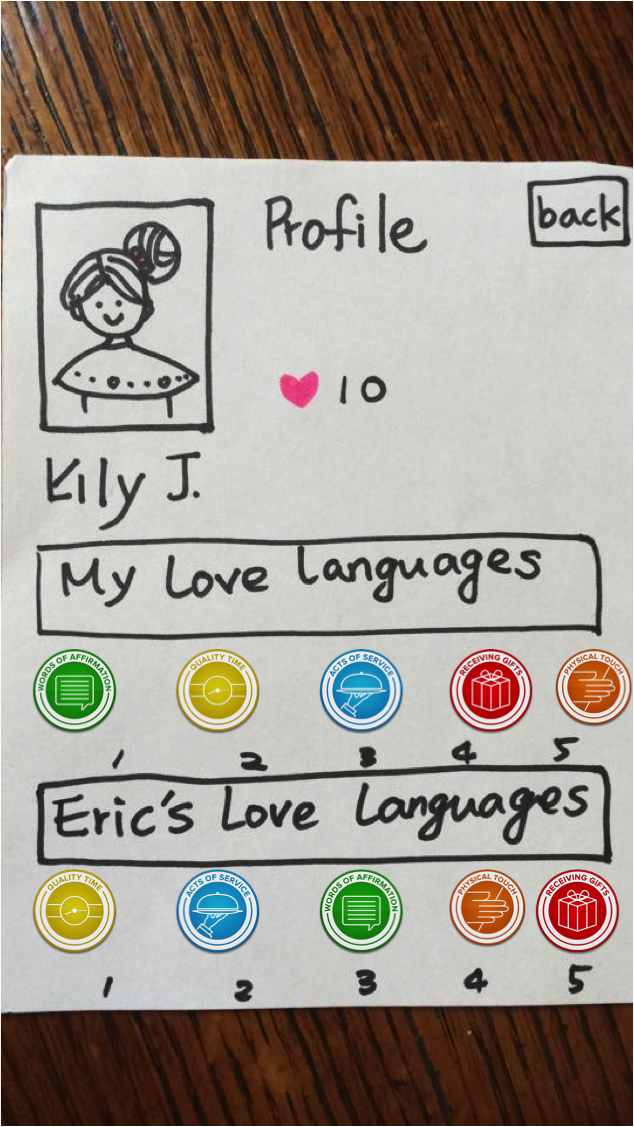 Profile
back
10
Kily J.
My Love Languages
WORDS OF AFFIRMATION
QUALITY TIME
ACTS OF SERVICE
RECEIVING GIFTS
PHYSICAL TOUCH
1 2 3 4 5
Eric's Love Languages
QUALITY TIME
ACTS OF SERVICE
WORDS OF AFFIRMATION
PHYSICAL TOUCH
RECEIVING GIFTS
1 2 3 4 5